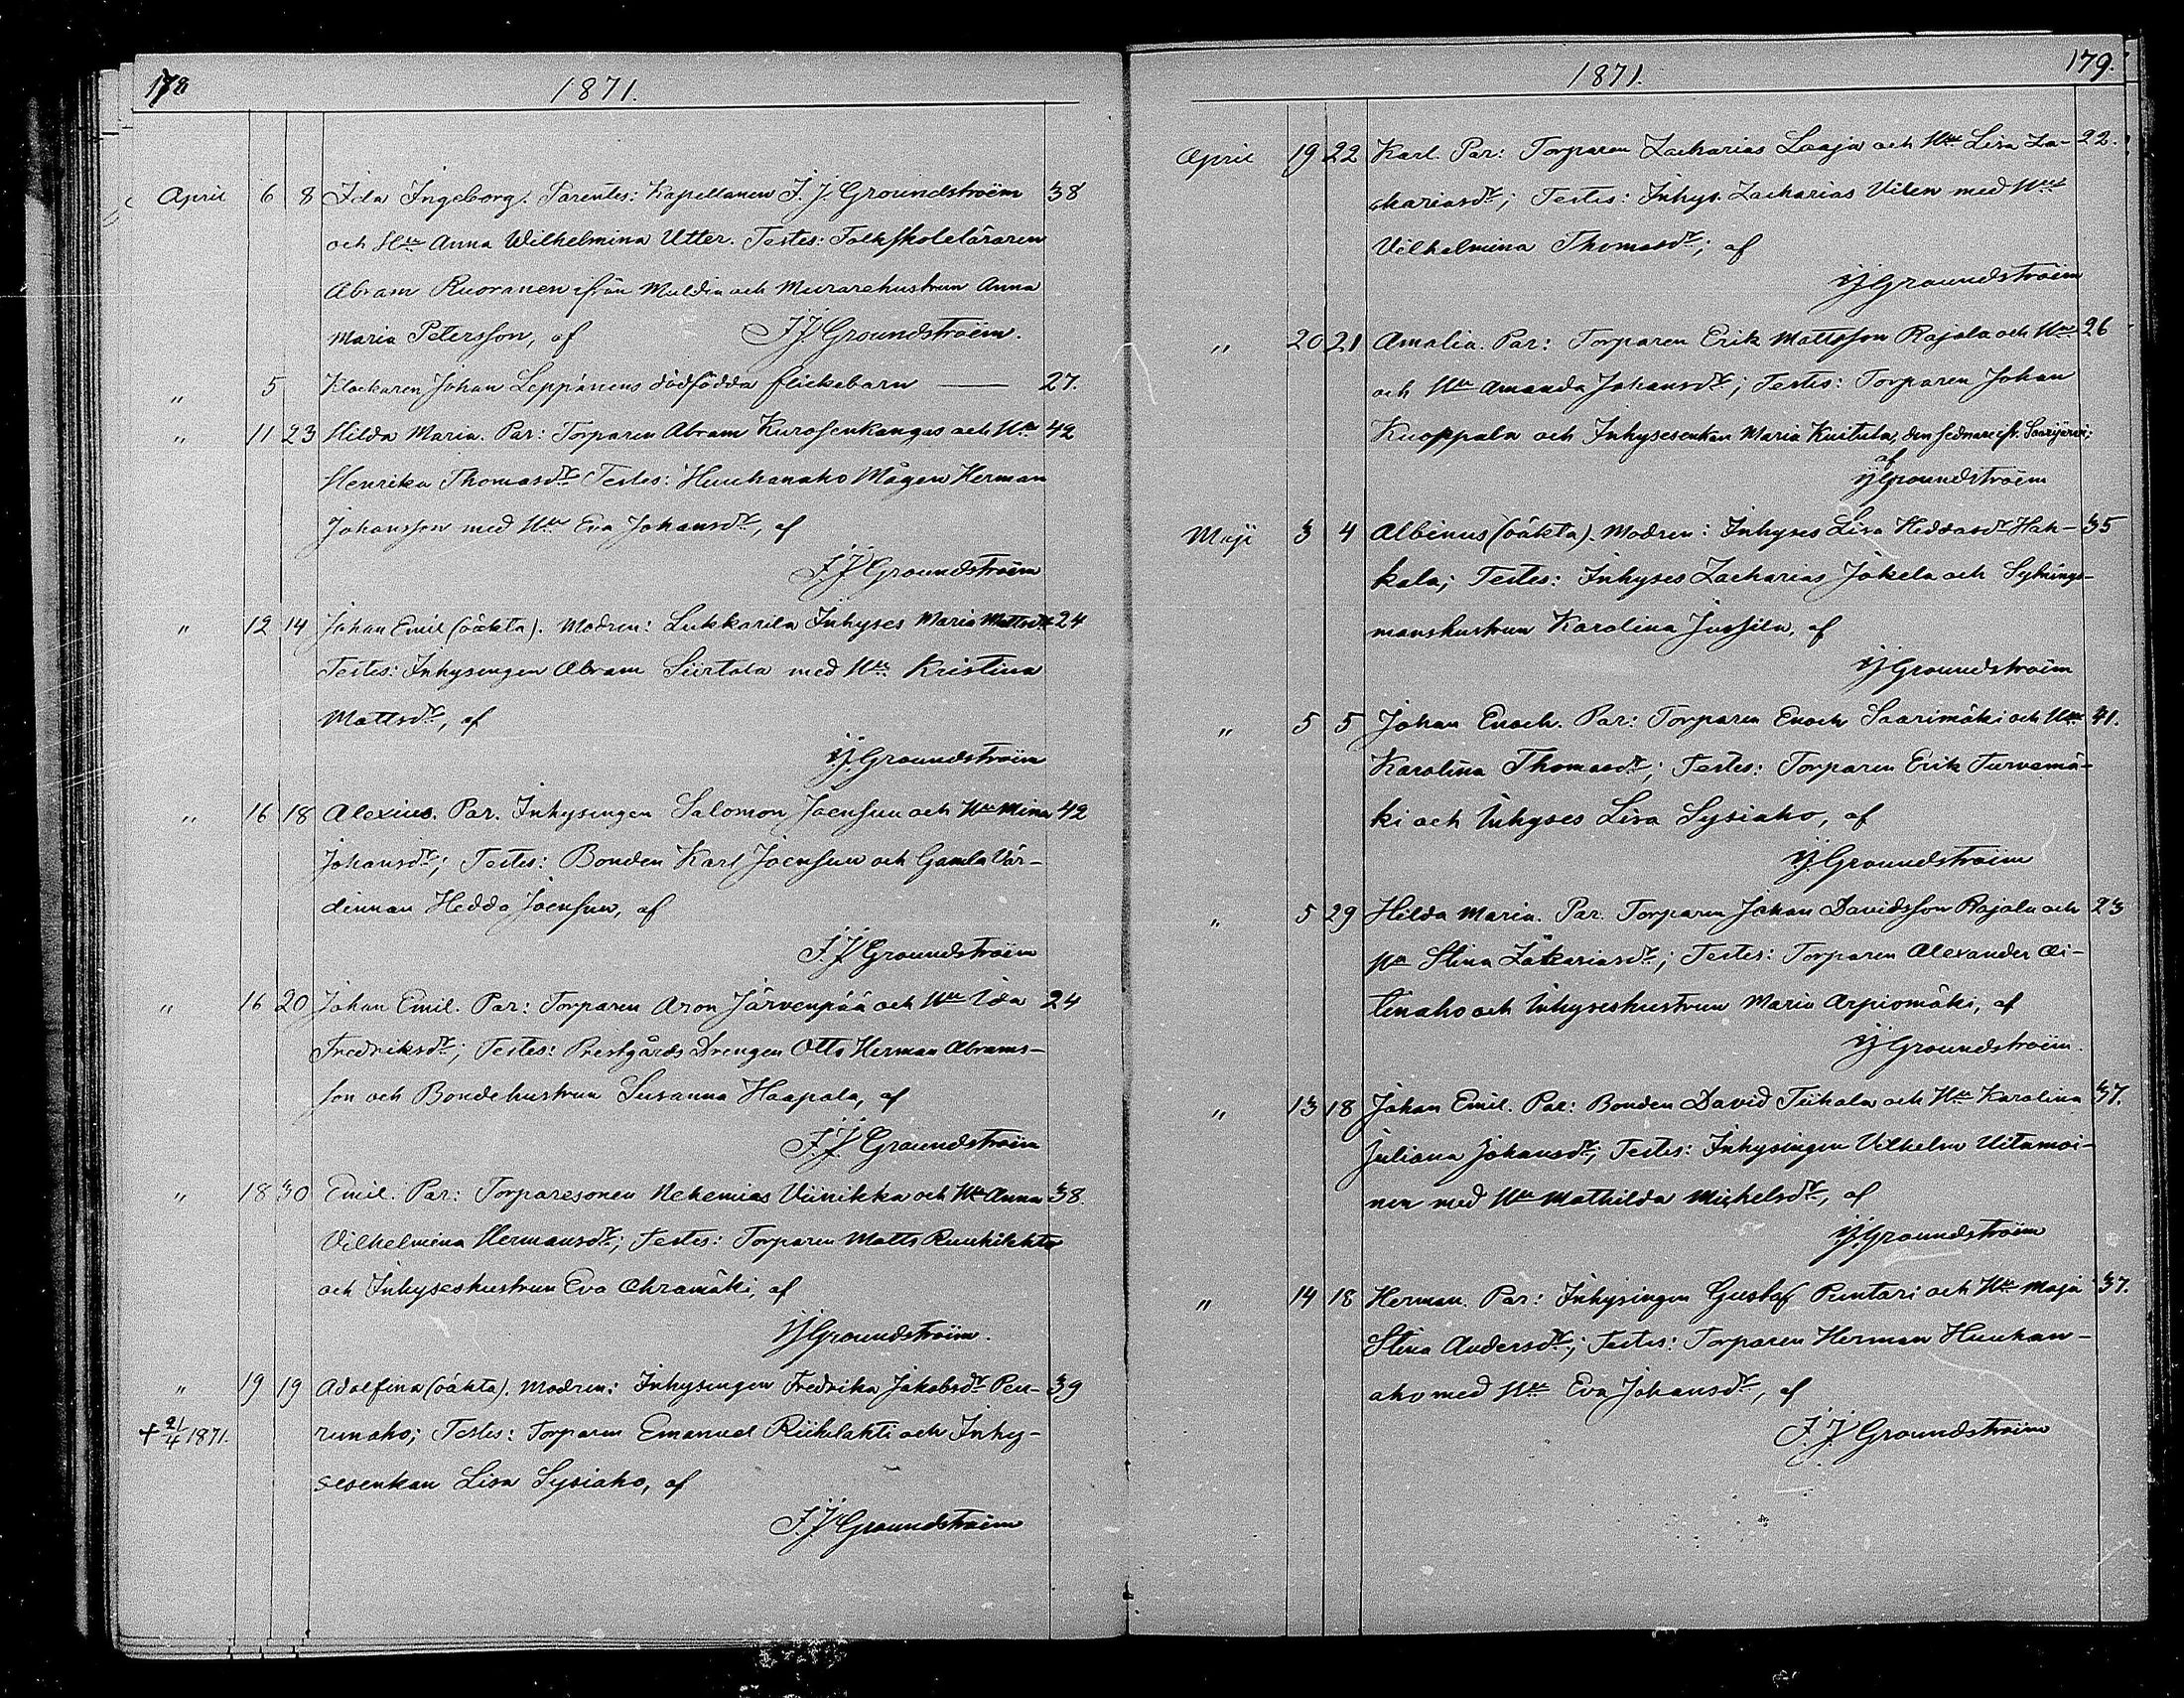 178
1871.
April 6 8 Ida Ingeborg. Parentes: Kapellanen F. J. Groundstroëm 38
och Hu Anna Wilhelmina Utter. Testes: Folkskoleläraren
Abram Ruoranen ifrån Muldia och Murarehustrun Anna
Maria Petersson, af F. J. Groundstroëm.
" 5 Klockaren Johan Leppänens dödfödda flickebarn — 27.
" 11 23 Hilda Maria. Par: Torparen Abram Kurosenkangas och Hu 42
Henrika Thomasdr. Testes: Huuhanaho Mågen Herman
Johansson med Hu Eva Johansdr, af
F. J. Groundstroëm
" 12 14 Johan Emil (oäkta). Modren: Lukkarila Inhyses Maria Mattsdr 24
Testes: Inhysingen Abram Siirtola med Hu Kristina
Mattsdr, af
F. J. Groundstroëm
" 16 18 Alexius. Par. Inhysingen Salomon Joensuu och Hu Mina 42
Johansdr; Testes: Bonden Karl Joensuu och Gamla Vär-
dinnan Hedda Joensuu, af
F. J. Groundstroëm
" 16 20 Johan Emil. Par: Torparen Aron Järvenpää och Hu Ida 24
Fredriksdr; Testes: Prestgårds Drengen Otto Herman Abrams-
son och Bondehustrun Susanna Haapala, af
F. J. Groundstroëm
" 18 30 Emil. Par: Torparesonen Nehemias Viinikka och Hu Anna 38.
Vilhelmina Hermansdr; Testes: Torparen Matts Ruuhilahti
och Inhyseshustrun Eva Ahramäki, af
F. J. Groundstroëm.
" 19 19 Adolfina (oäkta). Modren: Inhysingen Fredrika Jakobsdr Pen- 39
† 21/4 1871. runaho; Testes: Torparen Emanuel Riihilahti och Inhy-
sesenkan Lisa Sysiaho, af
F. J. Groundstroëm
179.
1871.
April 19 22 Karl. Par: Torparen Zacharias Laaja och Hu Lisa Za- 22.
chariasdr; Testes: Inhys. Zacharias Vilen med Hu
Vilhelmina Thomasdr; af
F. J. Groundstroëm
" 20 21 Amalia. Par: Torparen Erik Mattsson Rajala och Hu 26
och Hu Amanda Johansdr; Testes: Torparen Johan
Kuoppala och Inhysesenkan Maria Kuitula, den sednare ifr. Saarijärvi;
af
F. J. Groundstroëm
Maji 3 4 Albinus (oäkta). Modren: Inhyses Lisa Heddasdr Hak- 35
kala; Testes: Inhyses Zacharias Jokela och Sytnings-
manshustrun Karolina Jussila, af
F. J. Groundstroëm
" 5 5 Johan Enoch. Par: Torparen Enoch Saarimäki och Hu 41.
Karolina Thomasdr; Testes: Torparen Erik Turvemä-
ki och Inhyses Lisa Sysiaho, af
F. J. Groundstroëm
" 5 29 Hilda Maria. Par. Torparen Johan Davidsson Rajala och 23
Hu Stina Zakariasdr; Testes: Torparen Alexander Ai-
tinaho och Inhyseshustrun Maria Arpiomäki, af
F. J. Groundstroëm.
" 13 18 Johan Emil. Par: Bonden David Tiihala och Hu Karolina 37.
Juliana Johansdr; Testes: Inhysingen Vilhelm Uitamoi-
nen med Hu Mathilda Michelsdr, af
F. J. Groundstroëm
" 14 18 Herman. Par: Inhysingen Gustaf Puntari och Hu Maja 37.
Stina Andersdr; Testes: Torparen Herman Huuhan-
aho med Hu Eva Johansdr, af
F. J. Groundstroëm